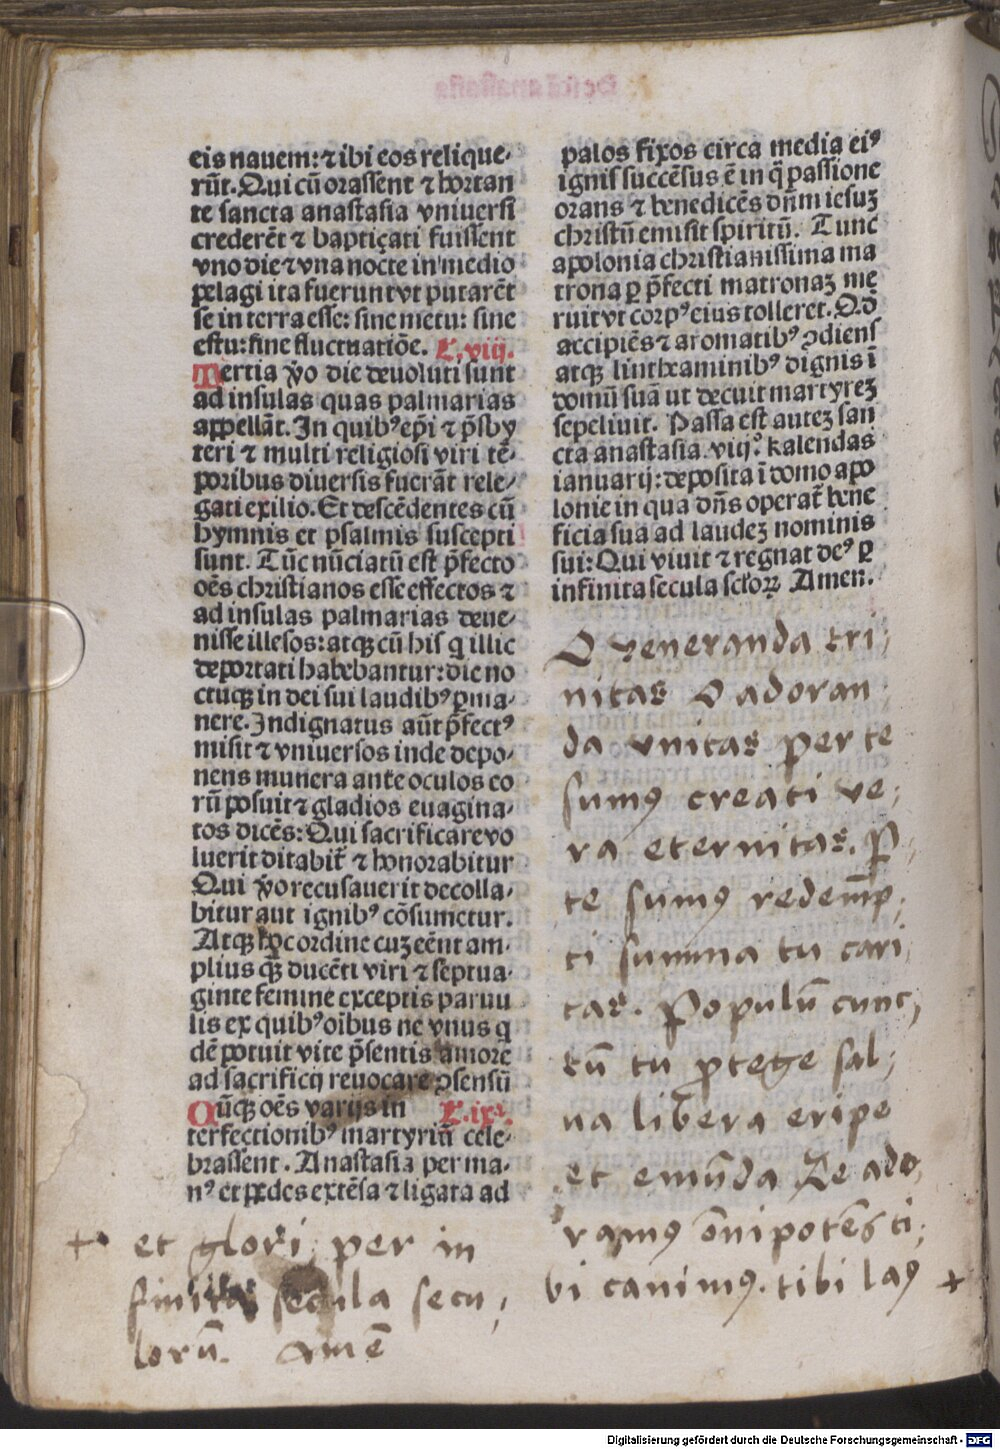 eis nauem: ⁊ ibi eos relique-
rūt. Qui cū orassent ⁊ hortan
te sancta anastasia vniuersi
crederēt ⁊ baptiçati fuissent
vno die ⁊ vna nocte in medio
pelagi ita fuerunt vt putarēt
se in terra esse: sine metu: sine
estu: sine fluctuatiōe. L. viij.
Tertia v̊o die deuoluti sunt
ad insulas quas palmarias
appellāt. In quibꝰ ep̄i ⁊ p̄sby
teri ⁊ multi religiosi viri tē-
poribus diuersis fuerāt rele-
gati exilio. Et descēdentes cū
hymnis et psalmis suscepti
sunt. Tūc nūciatū est p̄fecto
oēs christianos esse effectos ⁊
ad insulas palmarias deue-
nisse illesos: atqꝫ cū his q illic
deportati habebantur: die no
ctuqꝫ in dei sui laudibꝰ ꝑma-
nere. Indignatus aūt p̄fectꝰ
misit ⁊ vniuersos inde depo-
nens munera ante oculos eo
rū posuit ⁊ gladios euagina-
tos dicēs: Qui sacrificare vo
luerit ditabit̄ ⁊ honorabitur
Qui v̊o recusauerit decolla-
bitur aut ignibꝰ cōsumetur.
Atqꝫ hoc ordine cuꝫ eēnt am-
plius qꝫ ducēti viri ⁊ septua-
ginte femine exceptis paruu
lis ex quibꝰ oībus ne vnus q
dē potuit vite p̄sentis amore
ad sacrificij reuocare ꝯsensū
Qūqꝫ oēs varijs in L. ix.
terfectionibꝰ martyriū cele-
brassent. Anastasia per ma-
nꝰ et pedes extēsa ⁊ ligata ad
et glori, per in
finita secula secu,
lorū. amē
palos fixos circa media eiꝰ
ignis succēsus ē in q̄ passione
orans ⁊ benedicēs dn̄m iesuꝫ
christū emisit spiritū. Tunc
apolonia christianissima ma
trona ꝑ p̄fecti matronaꝫ me
ruit vt corpꝰ eius tolleret. Qd
accipiēs ⁊ aromatibꝰ ꝯdiens
atqꝫ lintheaminibꝰ dignis ī
domū suā ut decuit martyreꝫ
sepeliuit. Passa est auteꝫ san
cta anastasia. viij.° kalendas
ianuarij: deposita ī domo apo
lonie in qua dn̄s operat̄ bene
ficia sua ad laudeꝫ nominis
sui: Qui viuit ⁊ regnat deꝰ ꝑ
infinita secula sclorꝝ Amen.
O veneranda tri,
nitas O adoran
da vnitas per te
sumꝰ creati ve,
ra eternitas. P
te sumꝰ redemp̄,
ti summa tu cari,
tas. Populū cunc,
tū tu ꝓtege sal,
ua libera eripe
et emūda Te ado,
ramꝰ ōnipotēs ti,
bi canimꝰ. tibi laꝰ +
Digitalisierung gefördert durch die Deutsche Forschungsgemeinschaft - DFG